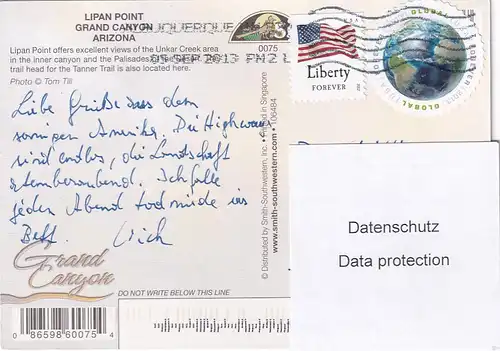 LIPAN POINT
GRAND CANYON
ARIZONA
Lipan Point offers excellent views of the Unkar Creek area
in the inner canyon and the Palisades
trail head for the Tanner Trail is also located here.
Photo © Tom Till
0075
05 SEP 2013 PM 2 L
Liberty
FOREVER
GLOBAL
GLOBAL
Liebe Grüße aus dem
sonnigen Amerika. Die Highways
sind endlos, die Landschaft
atemberaubend. Ich falle
jeden Abend todmüde ins
Bett.
Grand
Canyon
DO NOT WRITE BELOW THIS LINE
0 86598 60075 4
© Distributed by Smith-Southwestern, Inc. • Printed in Singapore
www.smith-southwestern.com • 106484
Datenschutz
Data protection